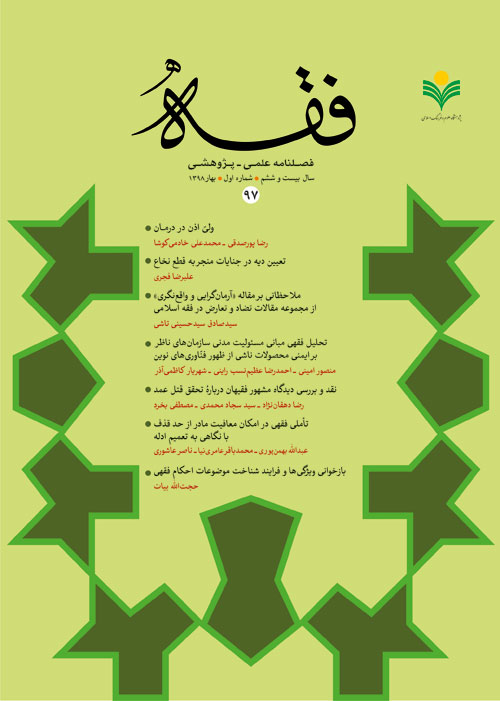 فقه
پژوهشگاه علوم و فرهنگ اسلامی
فصلنامه علمی - پژوهشی
سال بیست و ششم * شماره اول * بهار ۱۳۹۸
۹۷
ولیّ اذن در درمان
رضا پورصدقی ـ محمدعلی خادمی‌کوشا
تعیین دیه در جنایات منجر به قطع نخاع
علیرضا فجری
ملاحظاتی بر مقاله «آرمان‌گرایی و واقع‌نگری»
از مجموعه مقالات تضاد و تعارض در فقه اسلامی
سیدصادق سیدحسینی تاشی
تحلیل فقهی مبانی مسئولیت مدنی سازمان‌های ناظر
بر ایمنی محصولات ناشی از ظهور فنّاوری‌های نوین
منصور امینی ـ احمدرضا عظیم‌نسب راینی ـ شهریار کاظمی‌آذر
نقد و بررسی دیدگاه مشهور فقیهان دربارهٔ تحقق قتل عمد
رضا دهقان‌نژاد ـ سید سجاد محمدی ـ مصطفی بخرد
تأملی فقهی در امکان معافیت مادر از حد قذف
با نگاهی به تعمیم ادله
عبدالله بهمن‌پوری ـ محمدباقر عامری‌نیا ـ ناصر عاشوری
بازخوانی ویژگی‌ها و فرایند شناخت موضوعات احکام فقهی
حجت‌الله بیات